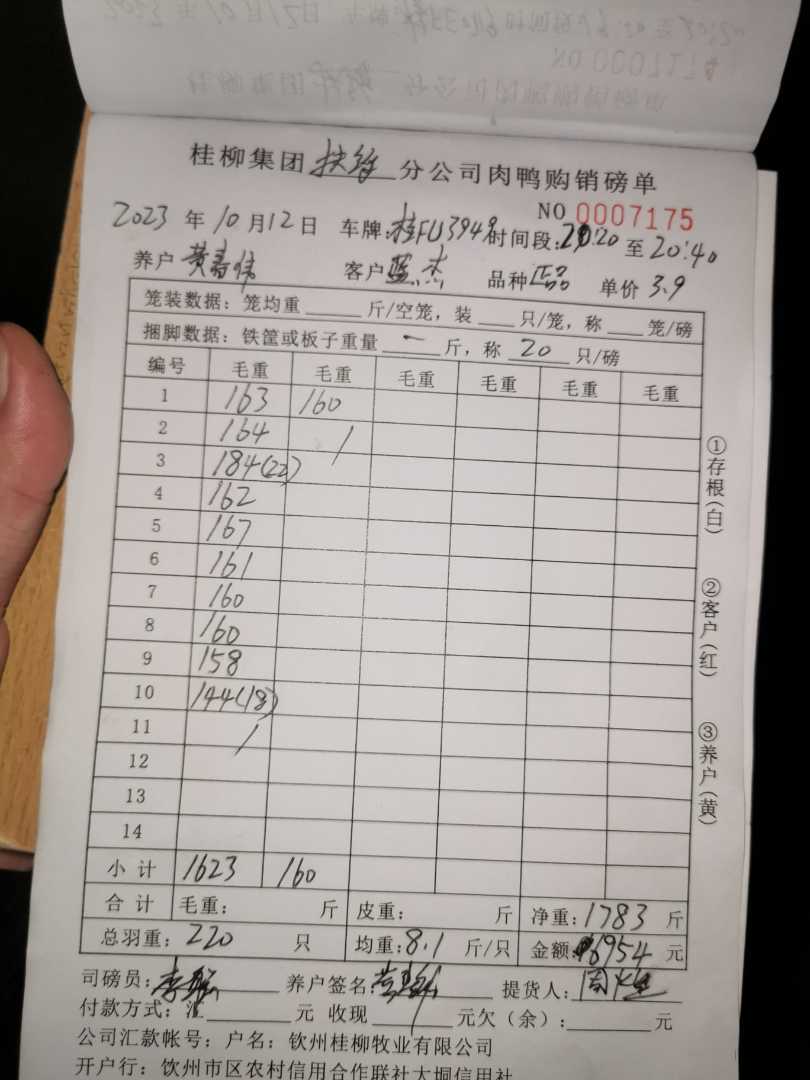 桂柳集团扶绥分公司肉鸭购销磅单
NO 0007175
2023年10月12日 车牌:桂FU3949时间段:20:20至20:40
养户黄春伟 客户蓝杰 品种正品 单价3.9
笼装数据：笼均重____斤/空笼，装___只/笼，称___笼/磅
捆脚数据：铁筐或板子重量 一 斤，称 20 只/磅
编号 毛重 毛重 毛重 毛重 毛重 毛重
1 163 160
2 164 /
3 184(22)
4 162
5 167
6 161
7 160
8 160
9 158
10 144(18)
11 /
12
13
14
小计 1623 160
合计 毛重： 斤 皮重： 斤 净重:1783斤
总羽重：220 只 均重:8.1斤/只 金额:6954元
司磅员: 养户签名: 提货人:
付款方式：汇______元 收现______元欠（余）:______元
公司汇款帐号：户名：钦州桂柳牧业有限公司
开户行：钦州市区农村信用合作联社大垌信用社
①存根(白)
②客户(红)
③养户(黄)